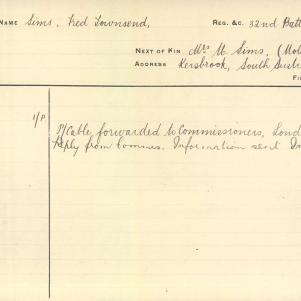 NAME Sims, Fred Townsend, REG. &C. 32nd Batt
NEXT OF KIN Mrs M Sims, (Mot
ADDRESS Kersbrook, South Austr
FI
1/P P/Cable, forwarded to Commissioners, Lond
Reply from Commrs. Information sent In